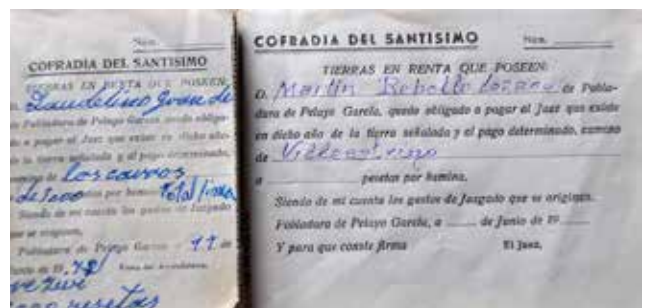 Núm.
COFRADIA DEL SANTISIMO
TIERRAS EN RENTA QUE POSEEN:
D. Laudelino Grande
de Pobladura de Pelayo García, quedo obliga-
do a pagar al Juez que existe en dicho año
de la tierra señalada y el pago determinado,
camino de los carros
a de 1000 pesetas por hemina. Total
Siendo de mi cuenta los gastos de Juzgado
que se originen.
Pobladura de Pelayo García a 11 de
Junio de 19 78
pesetas
COFRADIA DEL SANTISIMO Núm.
TIERRAS EN RENTA QUE POSEEN:
D. Martín Rebollo de Pobla-
dura de Pelayo García, quedo obligado a pagar al Juez que existe
en dicho año de la tierra señalada y el pago determinado, camino
de
a pesetas por hemina.
Siendo de mi cuenta los gastos de Juzgado que se originen.
Pobladura de Pelayo García, a de Junio de 19
Y para que conste firma El Juez,